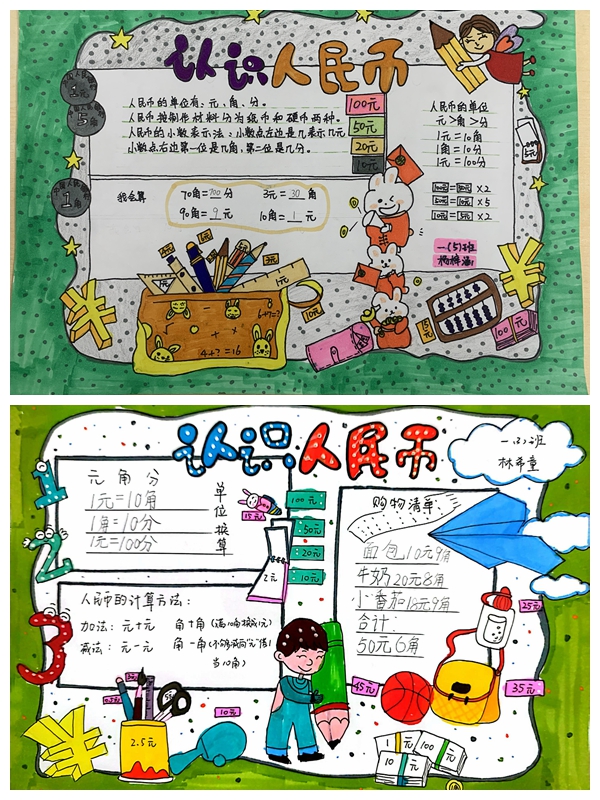 认识人民币
1元
5角
1角
人民币的单位有：元、角、分。
人民币按制作材料分为纸币和硬币两种。
人民币的小数表示法：小数点左边是几表示几元
小数点右边第一位是几角，第二位是几分。
100元
50元
20元
10元
人民币的单位
元>角>分
1元=10角
1角=10分
1元=100分
100元=50元×2
50元=10元×5
10元=5元×2
我会算
70角=700分
3元=30角
90角=9元
10角=1元
一(5)班
4元
1元
1元
6+?=?
4+?=16
10元
15元
100元
认识人民币
一(3)班
林希童
元 角 分
1元=10角
1角=10分
1元=100分
单位换算
15元
2元
100元
50元
20元
10元
购物清单
面包10元9角
牛奶20元8角
小番茄18元9角
合计：
50元6角
人民币的计算方法：
加法：元+元 角+角(满10角换1元)
减法：元-元 角-角(不够减向“元”借1
当10角)
1
2
3
2.5元
10元
45元
25元
35元
1元
100元
10元